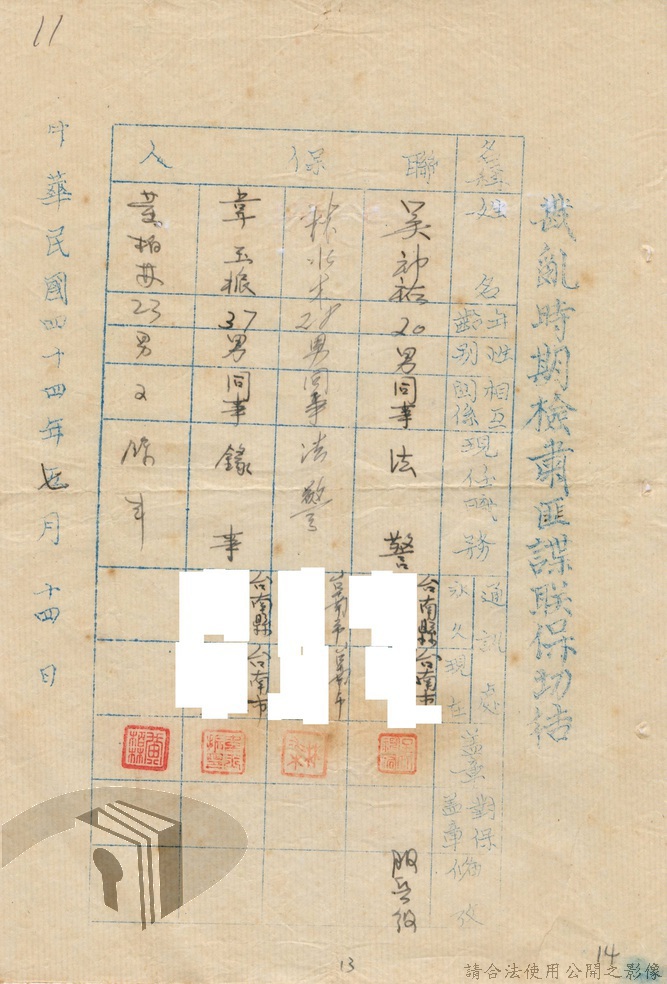 11
戡亂時期檢肅匪諜联保切結
名稱
姓名
年齡
性別
相互關係
現任職務
通訊處
永久
現在
蓋章
對保蓋章
備攷
聯保人
吳 20 男 同事 法警 台南縣 台南市 服兵役
林水木 28 男 同事 法警 台南市 台南市
韋玉振 37 男 同事 錄事 台南縣 台南市
黃柏林 23 男
中華民國四十四年七月十四日
13
14
請合法使用公開之影像